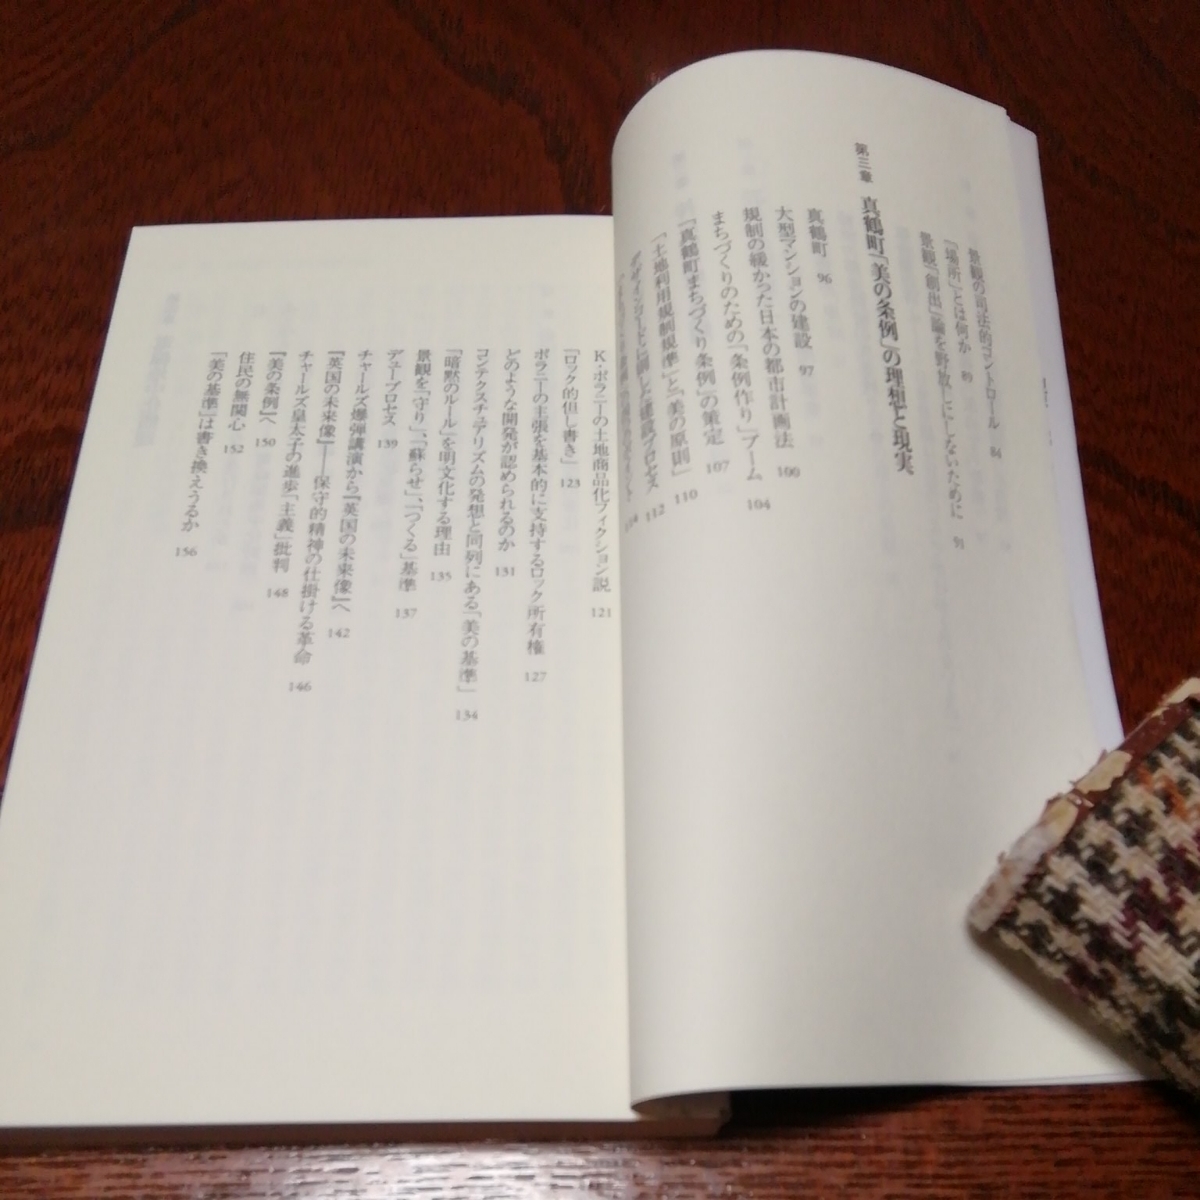 景観の司法的コントロール 84
「場所」とは何か 89
景観「創出」論を野放しにしないために 91
第三章 真鶴町「美の条例」の理想と現実
真鶴町 96
大型マンションの建設 97
規制の緩かった日本の都市計画法 100
まちづくりのための「条例作り」ブーム 104
「真鶴町まちづくり条例」の策定 107
「土地利用規制規準」と「美の原則」 110
デザインコードに則した建設プロセス 112
114
K・ポラニーの土地商品化フィクション説 121
「ロック的但し書き」 123
ポラニーの主張を基本的に支持するロック所有権 127
どのような開発が認められるのか 131
コンテクスチュアリズムの発想と同列にある「美の基準」 134
「暗黙のルール」を明文化する理由 135
景観を「守り」、「蘇らせ」、「つくる」基準 137
デュープロセス 139
チャールズ爆弾講演から『英国の未来像』へ 142
『英国の未来像』――保守的精神の仕掛ける革命 146
チャールズ皇太子の進歩「主義」批判 148
『美の条例』へ 150
住民の無関心 152
「美の基準」は書き換えうるか 156